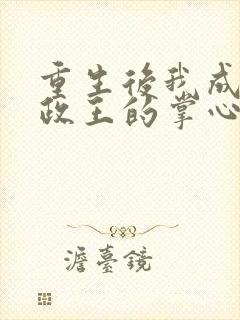 重生後我成
政王的掌心
澹臺鏡